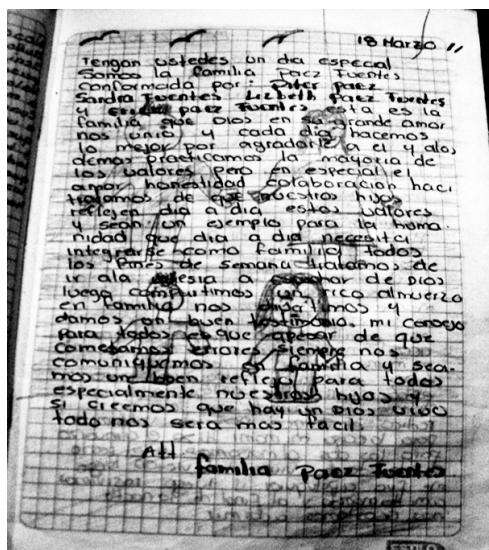 18 Marzo 11
Tengan ustedes un dia especial
Somos la familia paez Fuentes
conformada por: Piter paez
Sandra Fuentes Lizbeth paez Fuentes
y paez Fuentes esta es la
familia que Dios en su grande amor
nos unio y cada dia hacemos
lo mejor por agradarle a el y alos
demas practicamos la mayoria de
los valores pero en especial el
amor honestidad colaboracion haci
tratamos de que nuestros hijos
reflejen dia a dia estos valores
y sean un ejemplo para la huma.
nidad que dia a dia necesita
integrarse como familia todos
los fines de semana tratamos de
ir ala iglesia a escuchar de Dios
luego compartimos un rico almuerzo
en familia nos y
damos un buen testimonio. mi consejo
para todos es que apesar de que
cometamos errores siempre nos
comuniquemos en familia y sea-
mos un buen reflejo para todos
especialmente nuestros hijos y
si creemos que hay un Dios vivo
todo nos sera mas facil.
Att
familia paez Fuentes